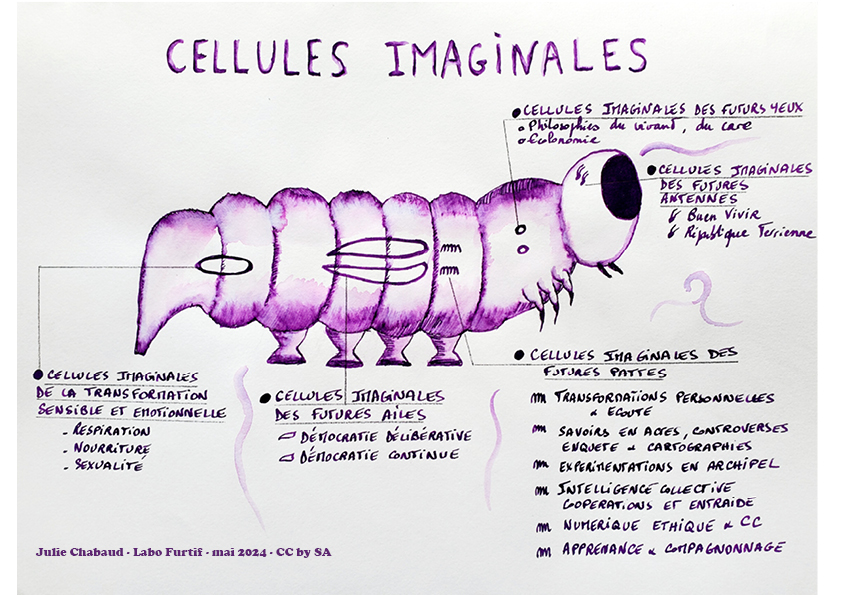 CELLULES IMAGINALES
CELLULES IMAGINALES DES FUTURS YEUX
Philosophies du vivant, du care
Ecolonomie
CELLULES IMAGINALES
DES FUTURES
ANTENNES
Buen Vivir
République Terrienne
CELLULES IMAGINALES
DE LA TRANSFORMATION
SENSIBLE ET EMOTIONNELLE
- RESPIRATION
- NOURRITURE
- SEXUALITÉ
CELLULES IMAGINALES
DES FUTURES AILES
DÉMOCRATIE DÉLIBÉRATIVE
DÉMOCRATIE CONTINUE
CELLULES IMAGINALES DES
FUTURES PATTES
TRANSFORMATIONS PERSONNELLES
& ECOUTE
SAVOIRS EN ACTES, CONTROVERSES
ENQUETE & CARTOGRAPHIES
EXPERIMENTATIONS EN ARCHIPEL
INTELLIGENCE COLLECTIVE
COOPERATIONS ET ENTRAIDE
NUMERIQUE ETHIQUE & CC
APPRENANCE & COMPAGNONNAGE
Julie Chabaud - Labo Furtif - mai 2024 - CC by SA